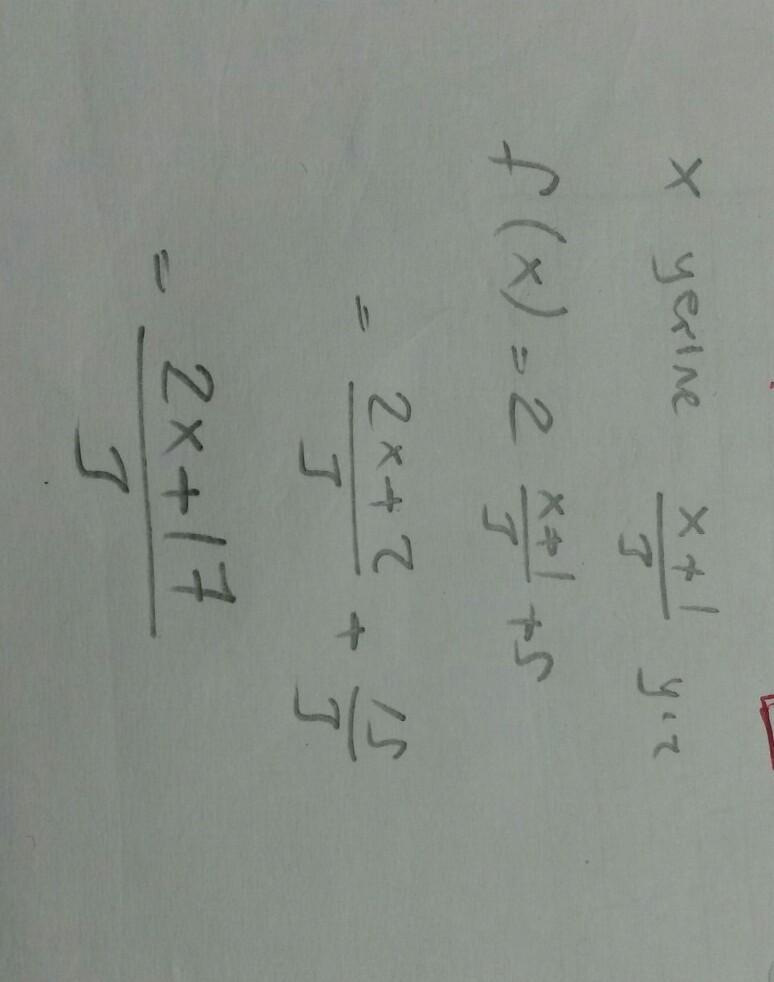 x yerine \frac{x+1}{3} yaz
f(x) = 2 \frac{x+1}{3} + 5
= \frac{2x+2}{3} + \frac{15}{3}
= \frac{2x+17}{3}